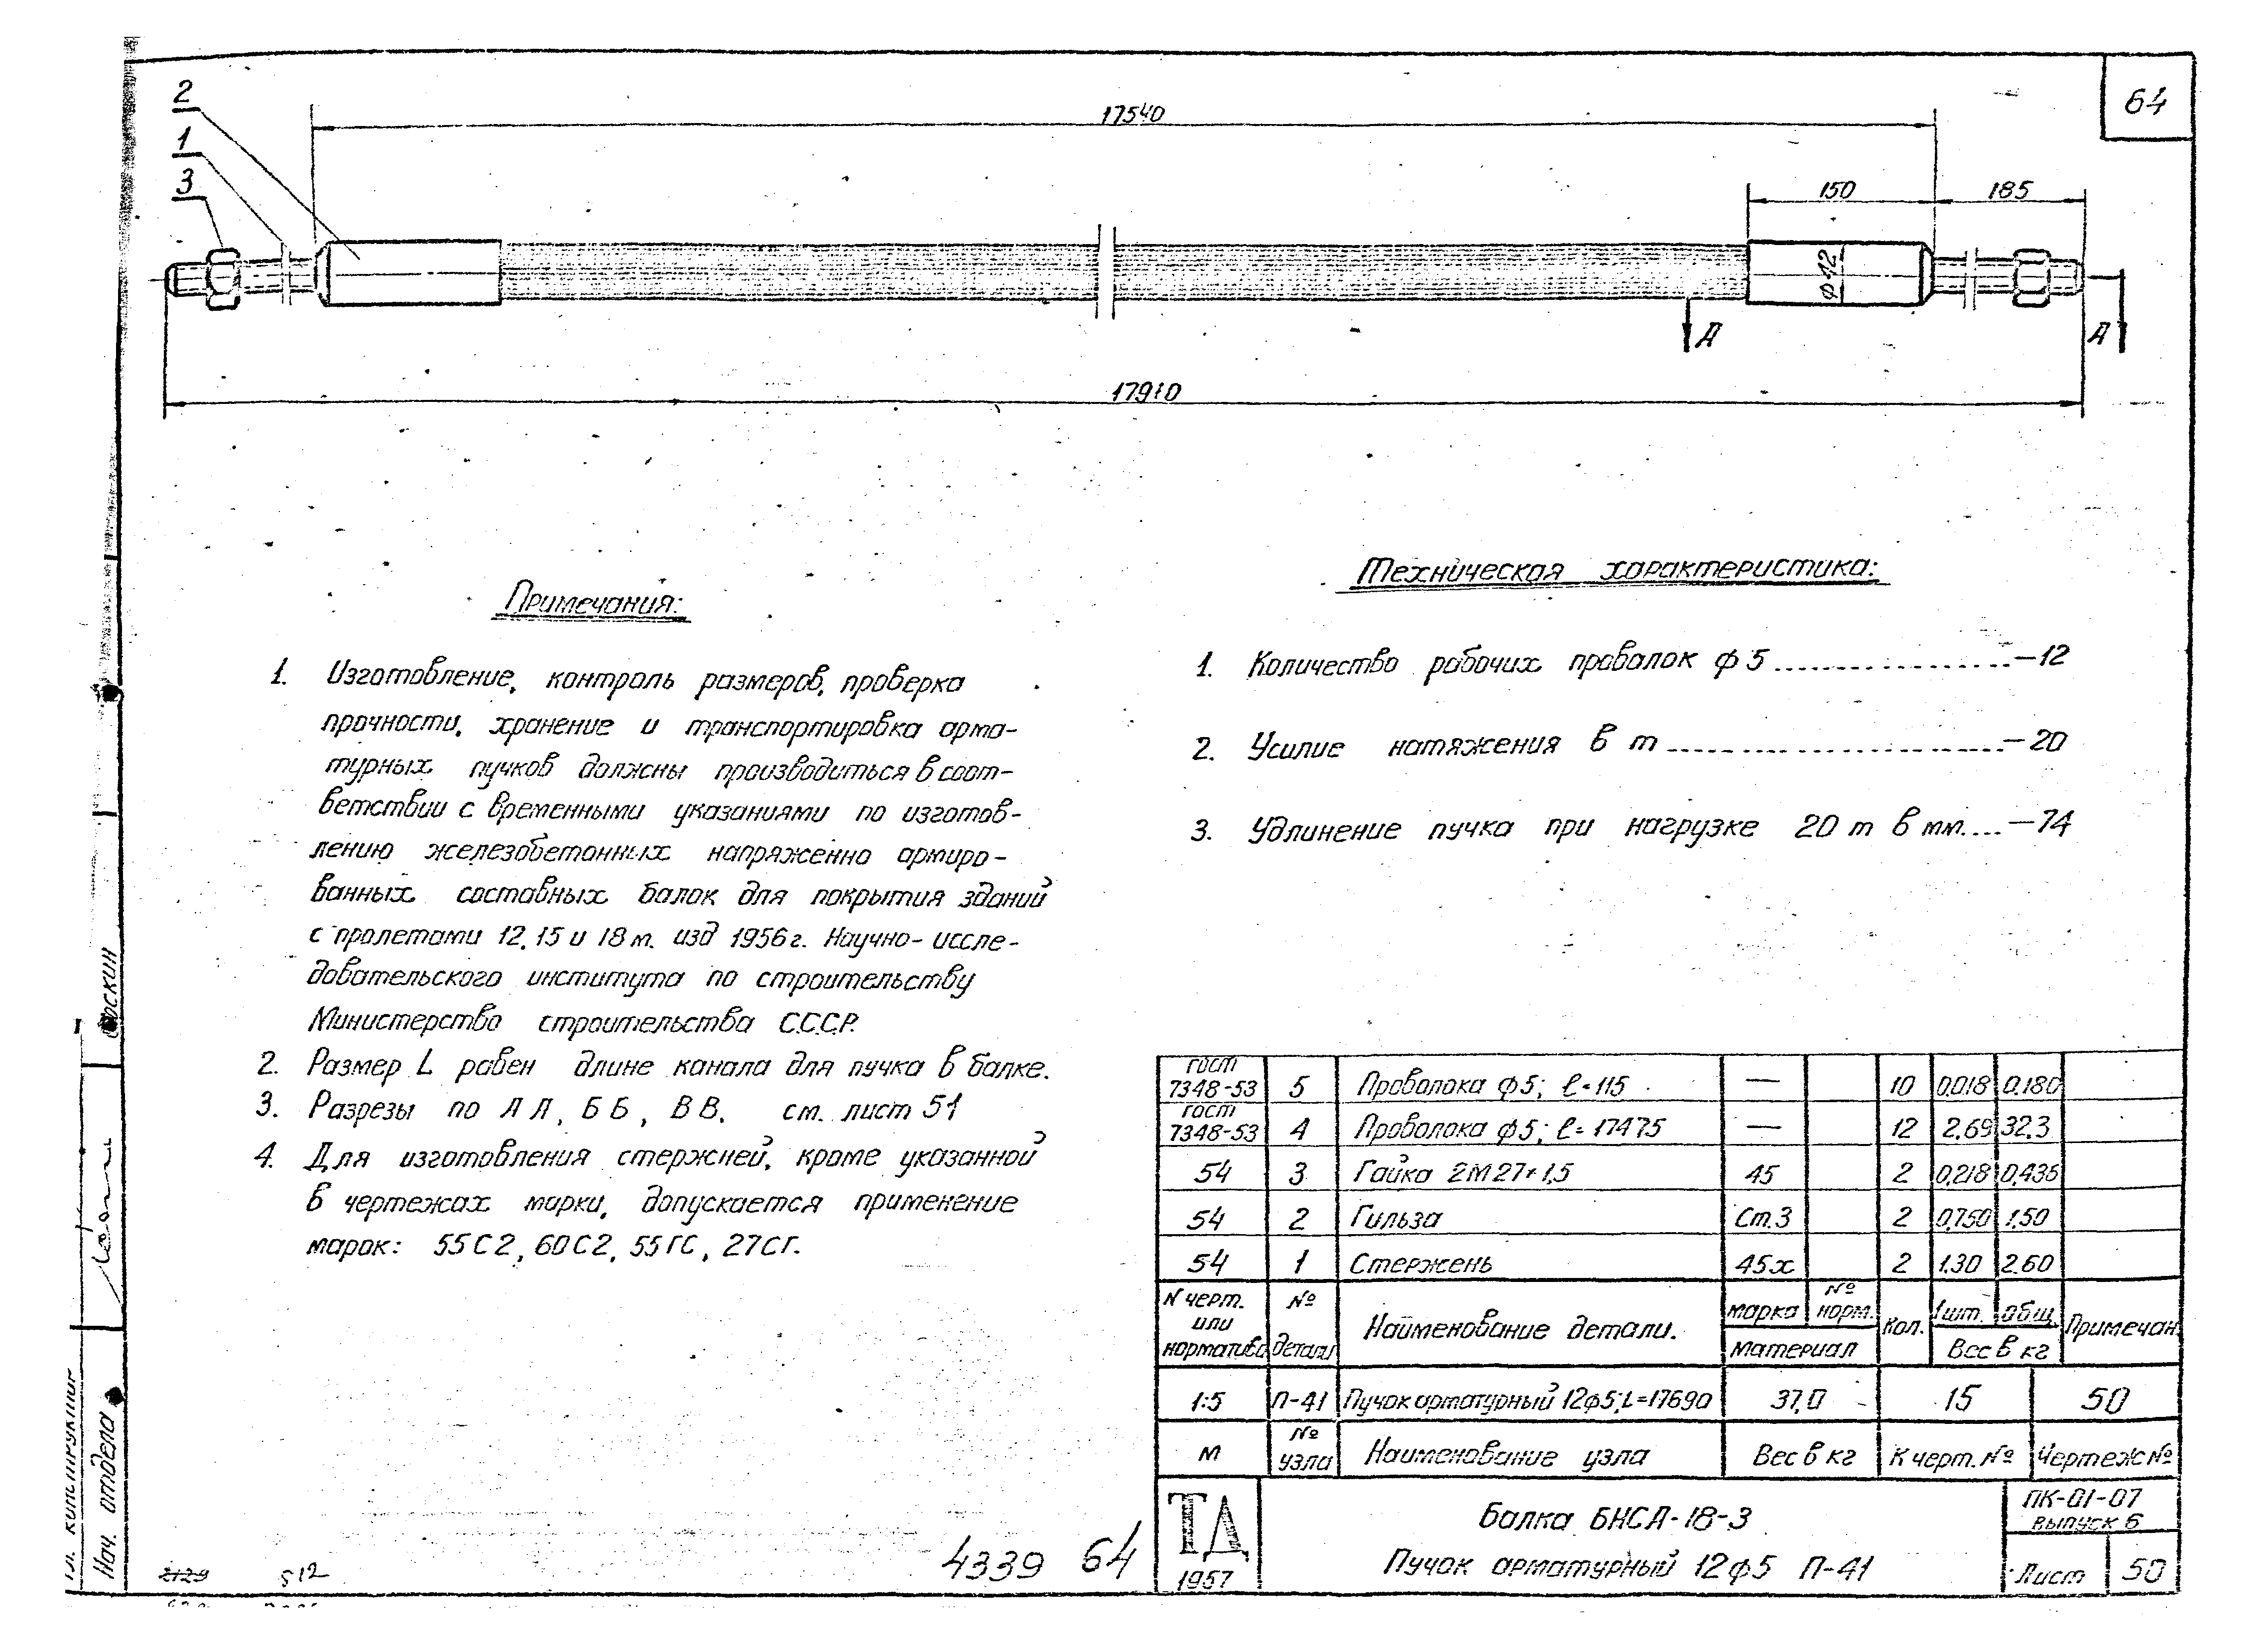 64
2
1
3
17540
150
185
ф42
А
А
17910
Примечания:
1. Изготовление, контроль размеров, проверка
прочности, хранение и транспортировка арма-
турных пучков должны производиться в соот-
ветствии с временными указаниями по изготов-
лению железобетонных напряженно армиро-
ванных составных балок для покрытия зданий
с пролетами 12, 15 и 18 м. изд 1956 г. Научно-иссле-
довательского института по строительству
Министерство строительства С.С.С.Р.
2. Размер L равен длине канала для пучка в балке.
3. Разрезы по АА, ББ, ВВ. см. лист 51
4. Для изготовления стержней, кроме указанной
в чертежах марки, допускается применение
марок: 55С2, 60С2, 55ГС, 27СГ.
Техническая характеристика:
1. Количество рабочих проволок ф5 —12
2. Усилие натяжения в т —20
3. Удлинение пучка при нагрузке 20 т в мм.... —74
гост 7348-53 5 Проволока ф5; ℓ=115 — 10 0,018 0,180
гост 7348-53 4 Проволока ф5; ℓ=17475 — 12 2.69 32.3
54 3 Гайка 2М27×1,5 45 2 0,218 0,436
54 2 Гильза Ст.3 2 0,750 1.50
54 1 Стержень 45х 2 1.30 2.60
N черт. или норматива № детали Наименование детали. марка № норм. Материал Кол. 1шт. общ. Вес в кг Примечан.
1:5 П-41 Пучок арматурный 12ф5; L=17690 37,0 15 50
М № узла Наименование узла Вес в кг К черт. № Чертеж №
ТД
1957
Балка БНСЛ-18-3
Пучок арматурный 12ф5 П-41
ПК-01-07
выпуск 6
Лист 50
4339 64
2129 512
Нач. отдела
Гл. конструктор